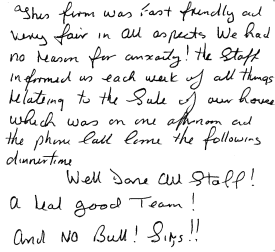 "This firm was fast friendly and
very fair in all aspects We had
no reason for anxiety! the Staff
informed us each week of all things
relateing to the Sale of our house
which was on one afternoon and
the phone call come the following
dinnertime
Well Done All Staff!
A real good Team!
And No Bull! Sirs!!